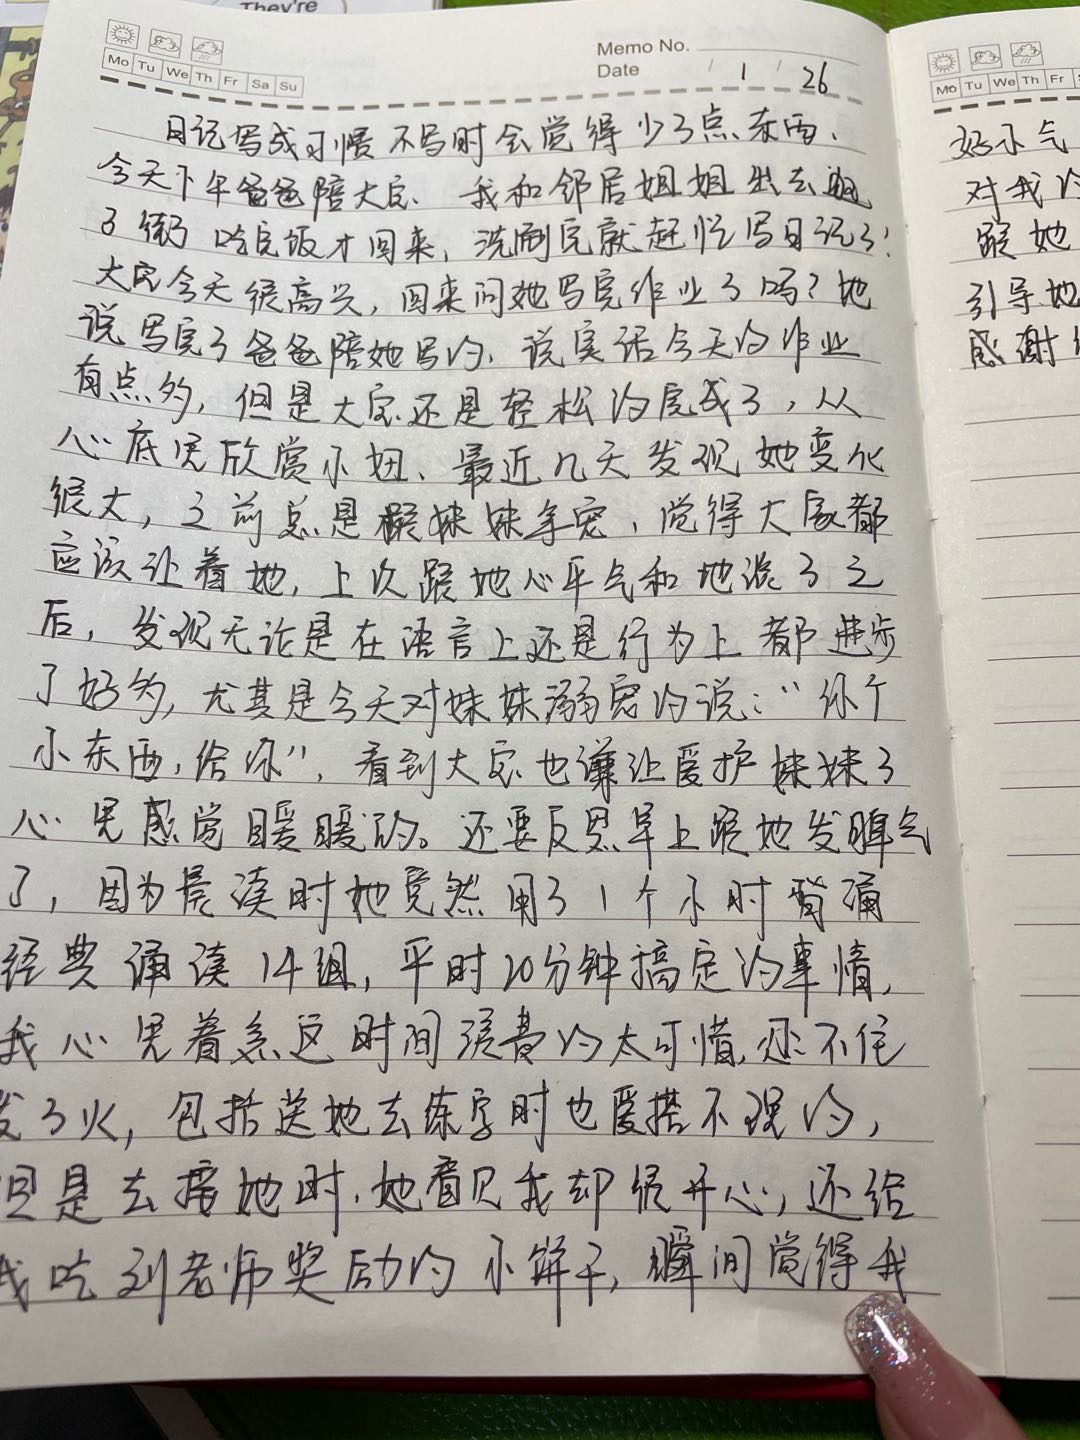 They're
Memo No.
Date / 1 / 26
Mo Tu We Th Fr Sa Su
日记写成习惯不写时会觉得少了点东西、
今天下午爸爸陪大宝、我和邻居姐姐出去逛
了街 吃完饭才回来，洗刷完就赶忙写日记了！
大宝今天很高兴，回来问她写完作业了吗？她
说写完了爸爸陪她写的、说实话今天的作业
有点多，但是大宝还是轻松的完成了，从
心底里欣赏小妞、最近几天发现她变化
很大，之前总是跟妹妹争宠、觉得大家都
应该让着她，上次跟她心平气和地说了之
后，发现无论是在语言上还是行为上都进步
了好多，尤其是今天对妹妹溺宠的说：“你个
小东西，给你”，看到大宝也谦让爱护妹妹了
心里感觉暖暖的。还要反思早上跟她发脾气
了，因为晨读时她竟然用了1个小时背诵
经典诵读14组，平时20分钟搞定的事情，
我心里着急这时间浪费的太可惜，忍不住
发了火，包括送她去练字时也爱搭不理的，
但是去接她时，她看见我却很开心，还给
我吃到老师奖励的小饼干，瞬间觉得我
Mo Tu We Th Fr
好小气
对我的
跟她
引导她
感谢